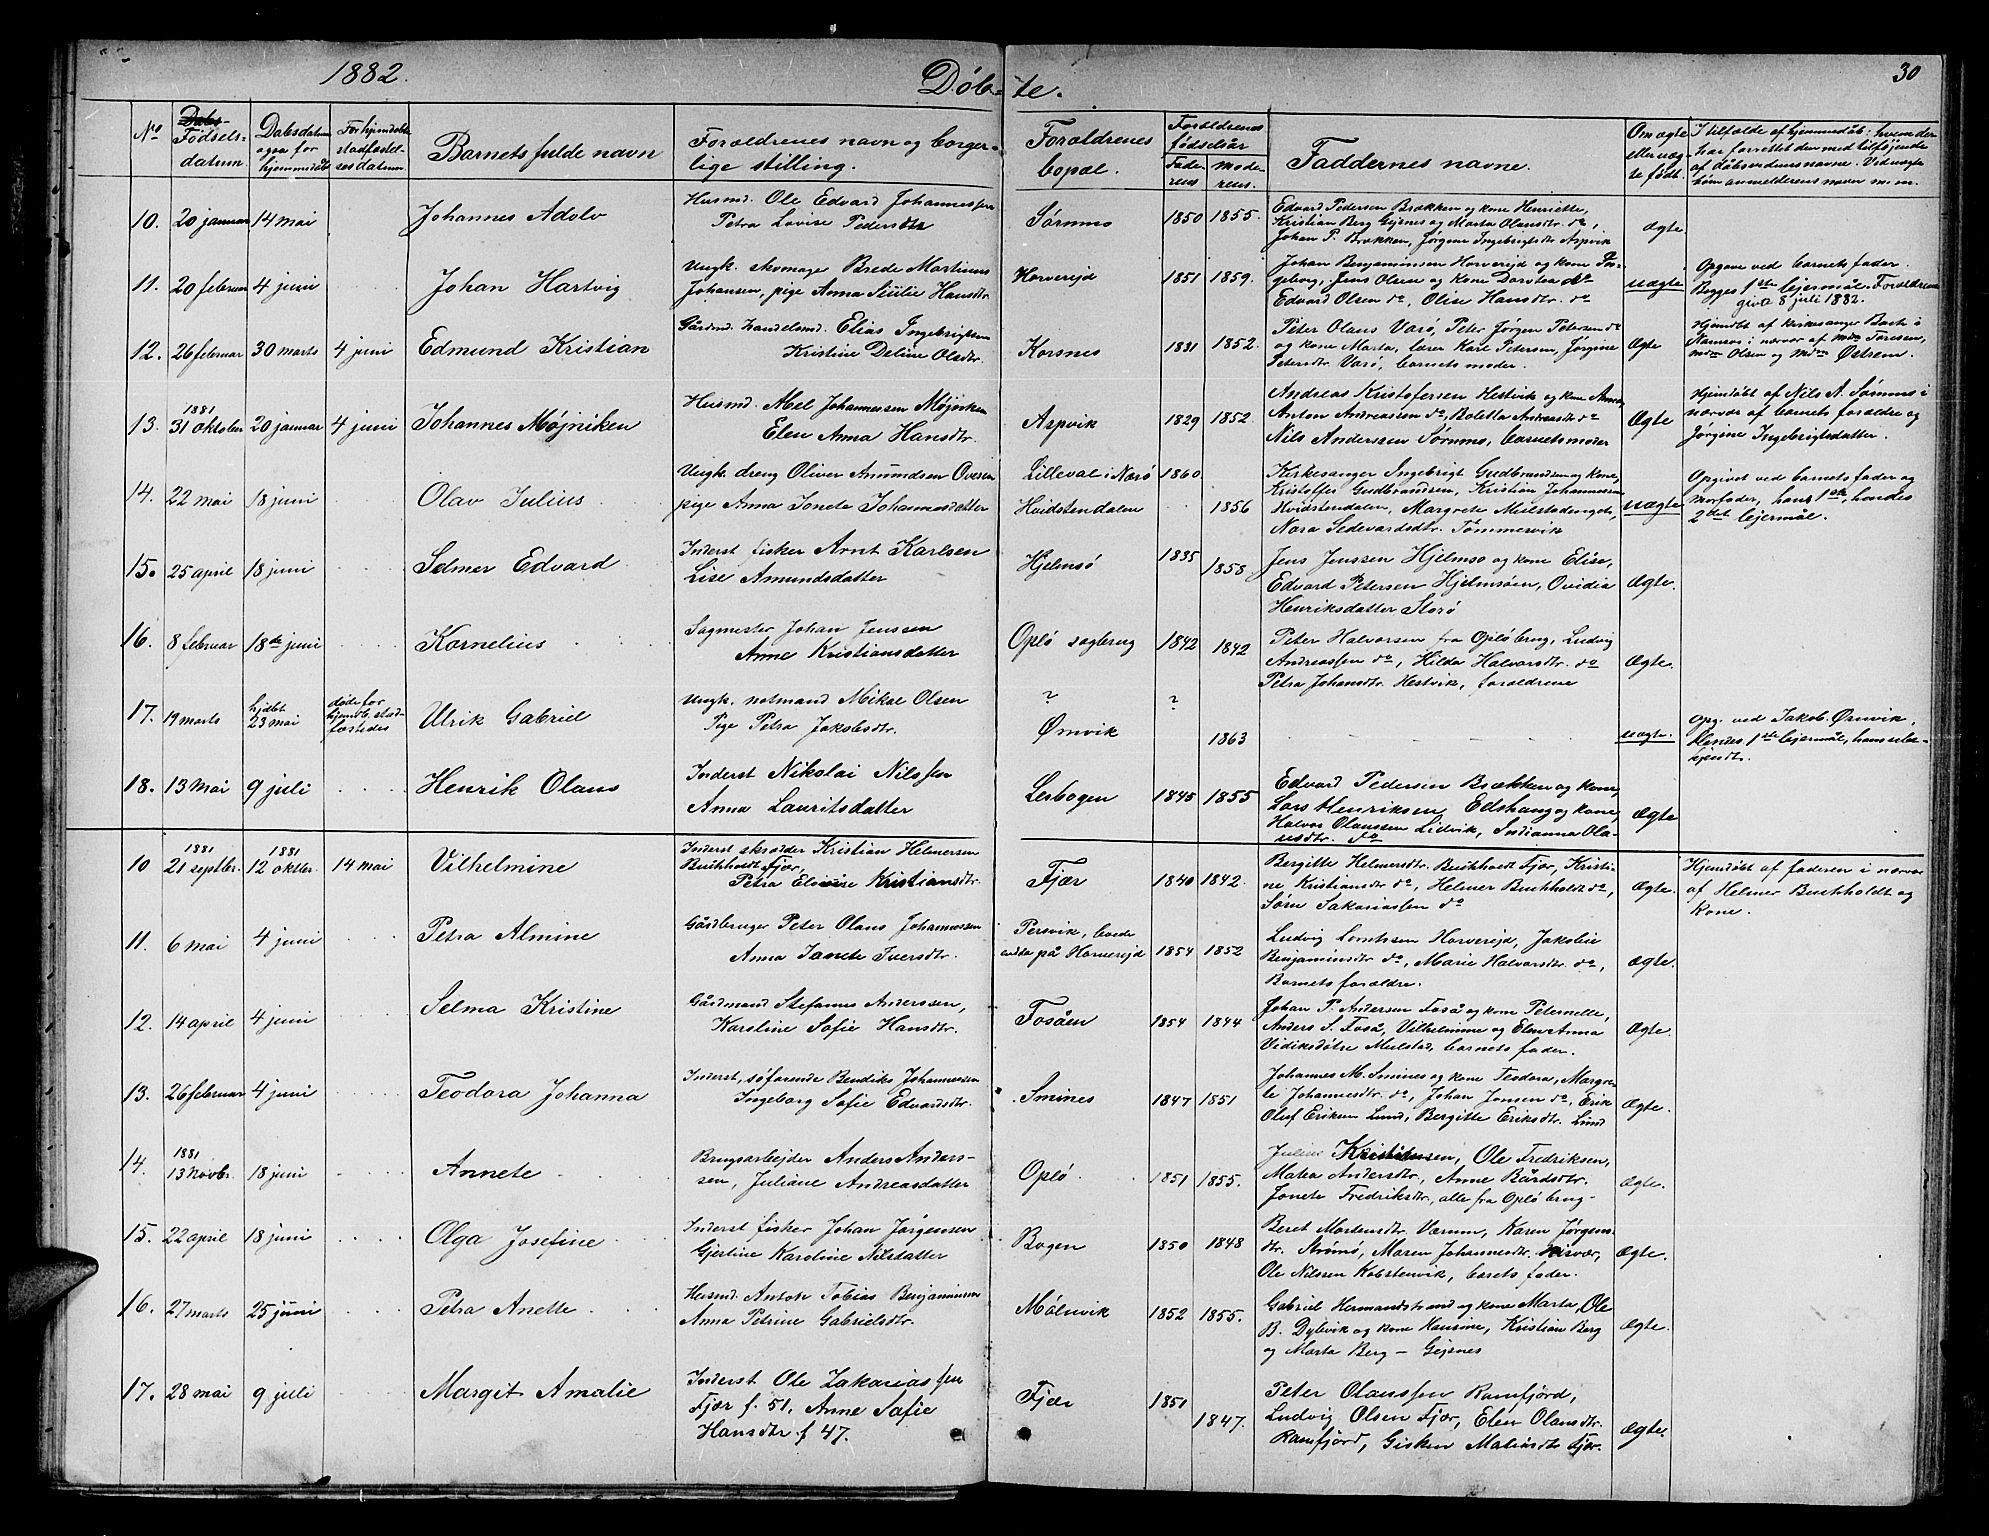 1882.
Døb-te.
30
No
Dabs-
Fødsels-
datum.
Dabsdatum
ogsa for
hjemmedåb
For hjemdøbte
stadfæstel-
ses datum.
Barnets fulde navn
Forældrenes navn og borger-
lige stilling.
Forældrenes
bopæl.
Forældrenes
fødselsår
Fade-
rens
mode-
rens.
Faddernes navne.
Om ægte
eller uæg-
te født.
I tilfælde af hjemmedåb: hvem der
har forrettet den med tilføjende
af dåbsvidnernes navne. Ved uægte
børn anmelderens navn m. m.
10. 20 januar 14 mai Johannes Adolv
Husmd. Ole Edvard Johannessen
Petra Lovise Pedersdtr
Sørmmo 1850 1855.
Edvard Pedersen Brækken og kone Henriette,
Kristian Berg Gejsnes og Marta Olausdtr. do,
Johan P. Brækken, Jørgine Ingebrigtsdtr Aspvik
ægte
11. 20 februar 4 juni Johan Hartvig
Ungk. skomager Brede Martinus
Johansen, pige Anna Julie Hansdtr.
Horvereid 1851 1859.
Johan Benjaminsen Horverejd og kone In-
geborg, Jens Olsen og kone Dorotea do
Edvard Olsen do, Olise Hansdtr. do
uægte
Opgave ved barnets fader.
Begges 1ste lejermål. Forældrene
givte 8 juli 1882.
12. 26 februar 30 marts 4 juni Edmund Kristian
Gårdmd. handelsmd. Elias Ingebrigtsen
Kristine Deline Olsdtr.
Korsnes 1831 1852.
Peter Olaus Varø, Peter Jørgen Petersen do
og kone Marta, lærer Kare Petersen, Jørgine
Petersdtr Varø, barnets moder.
Ægte
Hjemdøbt af kirkesanger Barth i
Stamsøs i nærvær af mdm Toresen,
mdm Olsen og mdm Østrem.
13. 1881
31 oktober 20 januar 4 juni Johannes Møjniken
Husmd. Abel Johannessen Møjniken
Elen Anna Hansdtr.
Aspvik 1829 1852.
Andreas Kristofersen Hestvik og kone Anna,
Anton Andreassen do, Boletta Andreasdtr do
Nils Anderssen Sørmmo, barnets moder
Ægte
Hjemdøbt af Nils A. Sørmmo i
nærvær af barnets forældre og
Jørgine Ingebrigtsdatter.
14. 22 mai 18 juni Olav Julius
Ungk. dreng Oliver Amundsen Oversen
pige Anna Joneta Johannesdatter
Lilleval i Nærø 1860
Hvidstendalen 1856
Kirkesanger Ingebrigt Gudbrandsen og kone,
Kristoffer Gudbrandsen, Kristian Johannessen
Hvidstendalen, Margrete Mulstadengets,
Nora Sedevardsdtr. Tømmervik
uægte
Opgivet ved barnets fader og
morfader, hans 1ste, hendes
2det lejermål.
15. 25 april 18 juni Selmer Edvard
Inderst fisker Arnt Karlsen
Lise Amundsdatter
Hjelmsø 1835 1858
Jens Jenssen Hjelmso og kone Elise,
Edvard Petersen Hjelmsøen, Ovidia
Henriksdatter Storø
Ægte.
16. 8 februar 18de juni Kornelius
Sagmester Johan Jenssen
Anne Kristiansdatter
Oplø sagbrug 1842 1842
Peter Halvorsen fra Oplø brug, Ludvig
Andreassen do, Hilda Halvorsdtr. do
Petra Johansdtr. Hestvik, forældrene
Ægte.
17. 19 marts hjdbt
23 mai døde før
hjemdb. stad-
fæstedes Ulrik Gabriel
Ungk. notmand Mikal Olsen
Pige Petra Jakobsdtr.
? ?
Ørnvik 1863
uægte.
Opg. ved Jakob. Ørnvik,
Hendes 1ste lejermål, hans ube-
kjendt.
18. 13 mai 9 juli Henrik Olaus
Inderst Nikolai Nilssen
Anna Lauritsdatter
Lesbogen 1845 1855
Edvard Pedersen Brækken og kone,
Lars Henriksen Edshaug og kone,
Halvor Olaussen Lidvik, Indianna Ola-
usdtr. do
Ægte
10 1881
21 septbr. 1881
12 oktbr. 14 mai Vilhelmine
Inderst skrædder Kristian Helmersen
Buchholdt Fjær,
Petra Elevise Kristiansdtr.
Fjær 1840 1842.
Bergitte Helmersdtr. Buchholdt Fjær, Kristi-
ne Kristiansdtr do, Helmer Buchholdt do,
Søren Sakariassen do
Ægte.
Hjemdøbt af faderen i nærvær
af Helmer Buchholdt og
kone.
11. 6 mai 4 juni Petra Almine
Gårdbruger Peter Olaus Johannessen
Anna Janete Iversdtr.
Persvik, boede
endda på Horverejd 1854 1852
Ludvig Lorntsen Horverejd, Jakobie
Benjaminsdtr do, Marie Halvorsdtr. do,
Barnets forældre.
Ægte.
12. 14 april 4 juni Selma Kristine
Gårdmand Stefanus Anderssen,
Karoline Sofie Hansdtr.
Fosåen 1854 1844
Johan P. Andersen Foså og kone Petemelle,
Anders S. Foså, Vilhelmine og Elen Anna
Vidiksdøtre Mulstad, barnets fader.
Ægte.
13. 26 februar 4 juni Teodora Johanna
Inderst, søfarende Bendiks Johannessen
Ingeborg Sofie Edvardsdtr.
Smines 1847 1851
Johannes M. Smines og kone Teodora, Margre-
te Johannesdtr. do, Johan Jonsen do, Erik
Oluf Eriksen Lund, Bergitte Eriksdtr. Lund
Ægte.
14. 1881
13 Novbr. 18 juni Annete
Brugsarbejder Anders Anders-
sen, Juliane Andreasdatter
Oplø. 1851 1855.
Julius Kristensen, Ole Fredriksen,
Matea Andersdtr., Anne Bårdsdtr.
Jonete Fredriksdtr, alle fra Oplø brug-
Ægte.
15. 22 april 18 juni Olga Josefine
Inderst fisker Johan Jørgensen
Gjertine Karoline Nilsdatter
Bogen 1850 1848
Beret Mortensdtr Værum, Karen Jørgens-
dtr. Strømø, Maren Johannesdtr. Risvær,
Ole Nilssen Kobstenvik, barets fader.
Ægte.
16. 27 marts 25 juni Petra Anette
Husmd. Anton Tobias Benjaminsen
Anna Petrine Gabrielsdtr.
Mølnvik 1852 1855.
Gabriel Hermandstrand og kone Marta, Ole
B. Dybvik og kone Hansine, Kristian Berg
og Marta Berg - Gejsnes
Ægte.
17. 28 mai 9 juli Margit Amalie
Inderst Ole Zakariassen
Fjær f. 51. Anne Sofie
Hansdtr f 47.
Fjær 1851 1847.
Peter Olaussen Ramfjord,
Ludvig Olsen Fjær, Elen Olausdtr.
Ramfjord, Gisken Matiasdtr Fjær.
Ægte.